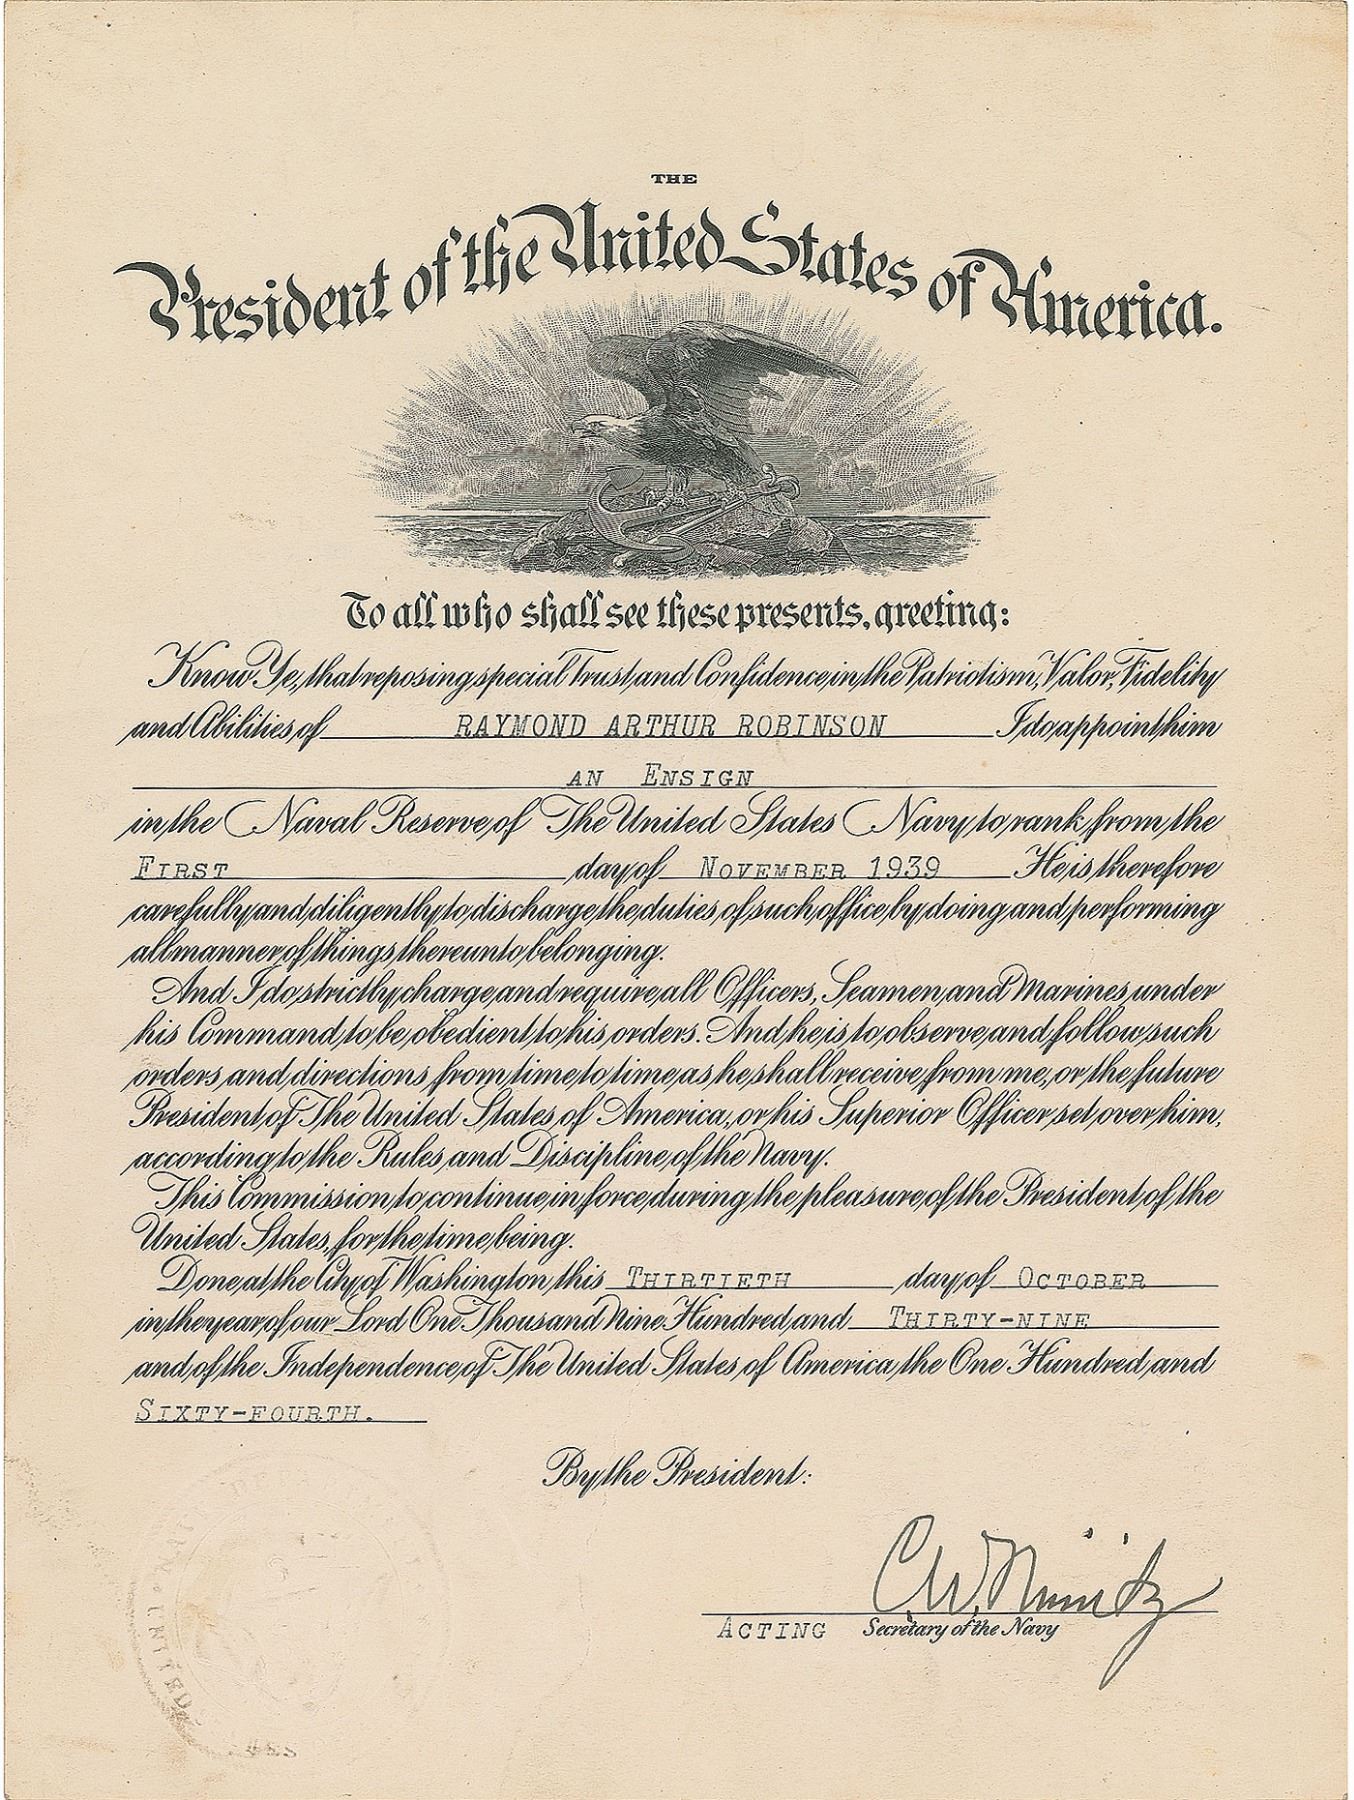 THE
President of the United States of America.
To all who shall see these presents, greeting:
Know Ye, that reposing special Trust and Confidence in the Patriotism, Valor, Fidelity
and Abilities of RAYMOND ARTHUR ROBINSON I do appoint him
AN ENSIGN
in the Naval Reserve of The United States Navy to rank from the
FIRST day of NOVEMBER 1939 He is therefore
carefully and diligently to discharge the duties of such office by doing and performing
all manner of things thereunto belonging.
And I do strictly charge and require all Officers, Seamen and Marines under
his Command to be obedient to his orders. And he is to observe and follow such
orders and directions from time to time as he shall receive from me, or the future
President of The United States of America, or his Superior Officer set over him,
according to the Rules and Discipline of the Navy.
This Commission to continue in force during the pleasure of the President of the
United States, for the time being.
Done at the City of Washington this THIRTIETH day of OCTOBER
in the year of our Lord One Thousand Nine Hundred and THIRTY-NINE
and of the Independence of The United States of America the One Hundred and
SIXTY-FOURTH.
By the President:
C.W. Nimitz
ACTING Secretary of the Navy
UNITED